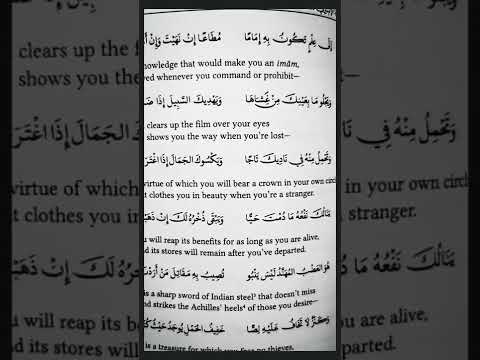 إِلَى عِلْمٍ تَكُونُ بِهِ إِمَامًا مُطَاعًا إِنْ نَهَيْتَ وَإِنْ
nowledge that would make you an imām,
ed whenever you command or prohibit—
وَيَجْلُو مَا بِعَيْنِكَ مِنْ غِشَاهَا وَيَهْدِيكَ السَّبِيلَ إِذَا
clears up the film over your eyes
shows you the way when you're lost—
وَتَحْمِلُ مِنْهُ فِي نَادِيكَ تَاجًا وَيَكْسُوكَ الجَمَالَ إِذَا
virtue of which you will bear a crown in your own circle
t clothes you in beauty when you're a stranger.
يَنَالُكَ نَفْعُهُ مَا دُمْتَ حَيًّا وَيَبْقَى ذُخْرُهُ لَكَ إِنْ
u will reap its benefits for as long as you are alive,
nd its stores will remain after you've departed.
هُوَ العَضْبُ المُهَنَّدُ لَيْسَ يَنْبُو تُصِيبُ بِهِ مَقَاتِلَ مَنْ
is a sharp sword of Indian steel³ that doesn't miss
nd strikes the Achilles' heels⁴ of those you desire—
وَكَنْزٌ لَا تَخَافُ عَلَيْهِ لِصًّا خَفِيفُ الحَمْلِ يُوجَدُ حَيْثُ
is a treasure for which you fear no thieves,